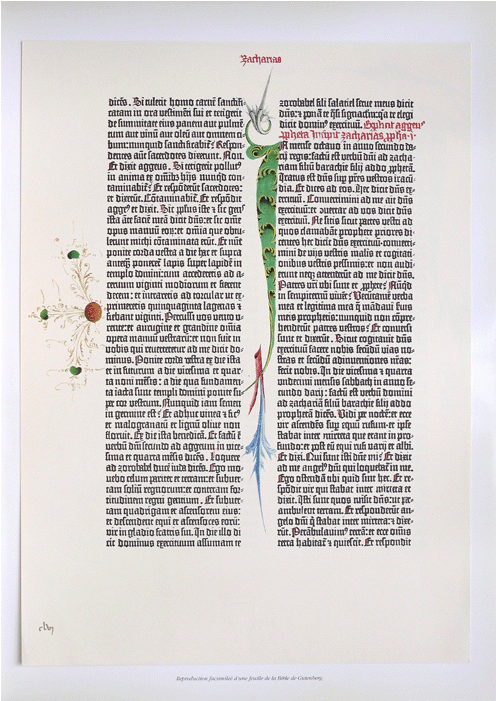 Zacharias
dicens. Si tulerit homo carnē sanctifi
catam in ora vestimēti sui et tetigerit
de summitate eius panem aut pulmē
tum aut vinū aut oleū aut omnem ci
bum: nunquid sanctificabit? Respon
dentes autē sacerdotes dixerunt. Non.
Et dixit aggeus. Si tetigerit pollut⁹
in anima ex omnibꝫ hijs nunqd con
taminabit? Et respōderūt sacerdotes:
et dixerūt. Cōtaminabit. Et respōdit
agge⁹ et dixit. Sic ppłus iste ⁊ sic gens
ista ante faciē meā dicit dn̄s: et sic omē
opus manuū eoꝝ: et omnia que obtu
lerunt michi cōtaminata erūt. Et nūc
ponite corda vestra a die hac et supra
antequā poneret᷑ lapis super lapidē in
templo domini: cum accederetis ad a
ceruum viginti modiorum et fierent
decem: et intraretis ad torcular ut ex
primeretis quinquaginta lagenas et
fiebant viginti. Percussi vos vento u
rente: et aurugine et grandine omnia
opera manuū vestrarū: et non fuit in
vobis qui reverteretur ad me dicit do
minus. Ponite corda vestra ex die ista
et in futurum a die vicesima et quar
ta noni mēsis: a die qua fundamen
ta iacta sunt templi domini ponite su
per cor vestrum. Nunquid iam semen
in germine est? Et adhuc vinea ⁊ fic⁹
et malogranatū et lignū olive non
floruit. Ex die ista benedicā. Et factū ē
verbū dn̄i secundo ad aggeum in vice
sima et quarta mēsis dicēs. Loquere
ad zorobabel ducē iuda dicēs. Ego mo
vebo celum pariter et terram: et subver
tam soliū regnorum: et conteram for
titudinem regni gentium. Et subver
tam quadrigam et ascensorem eius:
et descendent equi et ascensores eorū:
vir in gladio fratris sui. In die illo di
cit dominus exercituum assumam te
zorobabel fili salatiel serue meus dicit
dn̄s: ⁊ ponā te q̄si signaculum: q̄a te elegi
dicit domin⁹ exercituū. Explicit agge⁹
ppheta. Incipit zacharias. ppha. i.
In mense octavo in anno secundo da
rij regis: factū est verbū dn̄i ad zacha
riam filiū barachie filij addo pphetā
dicens. Iratus est dn̄s sup patres vestros iracū
dia. Et dices ad eos. Hec dicit dn̄s ex
ercituū. Convertimini ad me ait dn̄s
exercituū: et convertar ad vos dicit dn̄s
exercituū. Ne sitis sicut patres vestri ad
quos clamabāt prophete priores di
centes hec dicit dn̄s exercituū: converti
mini de vijs vestris malis et cogitati
onibus vestris pessimis: et non audi
erunt neqꝫ attenderūt ad me dicit dn̄s.
Patres vestri ubi sunt et pphete? Nūqd
in sempiternū vivēt? Verūtamē verba
mea et legitima mea q̄ mādavi servis
meis prophetis: nunquid non cōpre
henderūt patres vestros? Et conversi
sunt et dixerūt. Sicut cogitavit dn̄s
exercituū facere nobis secūdū vias no
stras et secūdū adinventiones nr̄as:
fecit nobis. In die vicesima ⁊ quarta
undecimi mensis sabbath in anno se
cundo darij: factū est verbū domini
ad zachariā filiū barachie filij addo
prophetā dicēs. Vidi per noctē: et ecce
vir ascendēs sup equū rufum: et ipse
stabat inter mirteta que erant in pro
fundo: et post eū equi rufi varij et albi.
Et dixi. Qui sunt isti dn̄e mi? Et dixit
ad me angelus dn̄i qui loquebat᷑ in me.
Ego ostendā tibi quid sint hec. Et re
spōdit vir qui stabat inter mirteta et
dixit. Isti sunt quos misit dn̄s: ut per
ambulent terram. Et responderūt an
gelo dn̄i q̄ stabat inter mirteta: ⁊ dixe
rūt. Perābulavim⁹ terrā: et ecce omnis
terra habitat᷑ ⁊ quiescit. Et respondit
Reproduction facsimilé d'une feuille de la Bible de Gutenberg